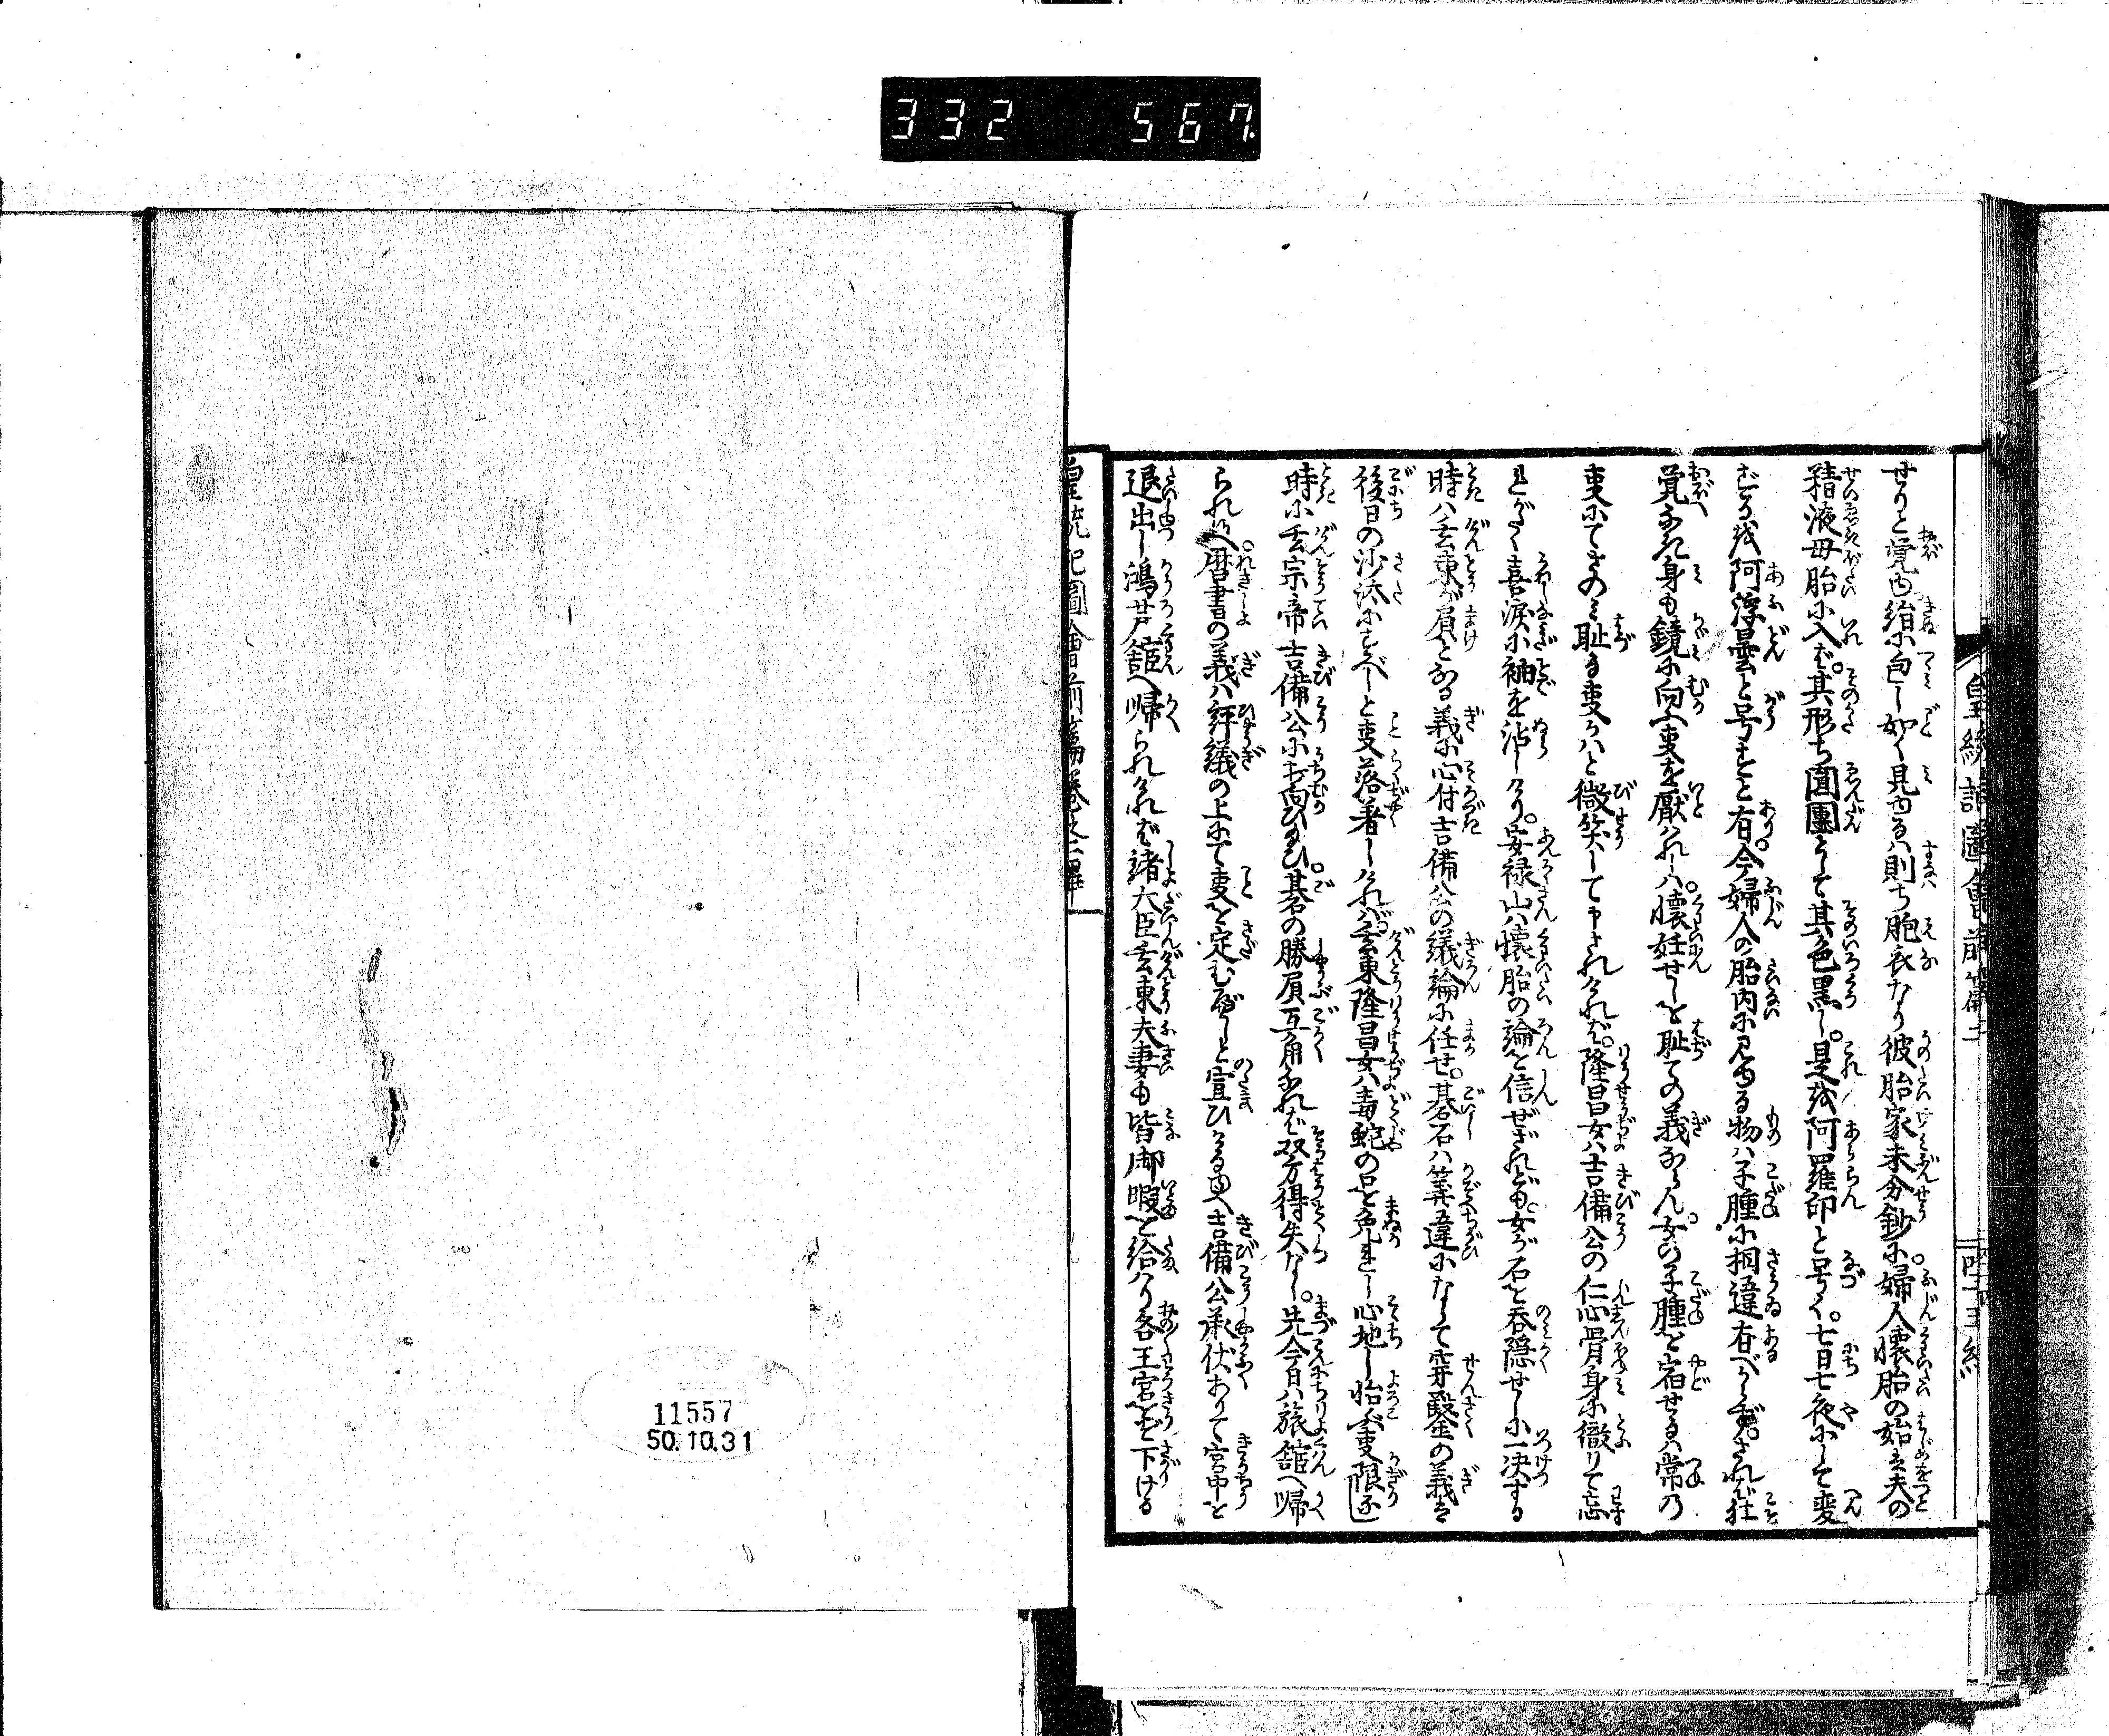 332 567
せりと覚ゆ絹に包し如く見ゆるハ則ち胞衣なり彼胎家未分鈔に婦人懐胎の始ハ夫の
精液母胎に入ば其形ち圓團にして其色黒し是を阿羅印と号く七日七夜にして変
ずるを阿浮曇と号すと有今婦人の胎内に見ゆる物ハ子腫に相違有べからずされば
覚なき身も鏡に向ふ事を厭れしハ懐妊せしを耻ての義ならん女の子腫を宿せるハ常の
事にてさのミ耻る事かハと微笑して申されければ隆昌女ハ吉備公の仁心骨身に徹りて忘
れがたく喜涙に袖を沾しけり安禄山ハ懐胎の論を信ぜざれども女が石を呑隠せしに一决する
時ハ玄東が負となる義に心付吉備公の議論に任せ碁石ハ筭違になして穿鑿の義を
後日の沙汰にすべしと事落着しけれバ玄東隆昌女ハ毒蛇の口を免れし心地し怡ぶ事限なし
時に玄宗帝吉備公に打向ひ玉ひ碁の勝負互角なれば双方得失なし先今日ハ旅舘へ帰
られよ暦書の義ハ評議の上にて事を定むべしと宣ひける由へ吉備公承伏ありて宮中を
退出し鴻芦舘へ帰られければ諸大臣玄東夫妻も皆御暇を給ハり各王宮を下ける
皇統記圖會前篇卷之二畢
皇統記圖會前篇二
11557
50.10.31